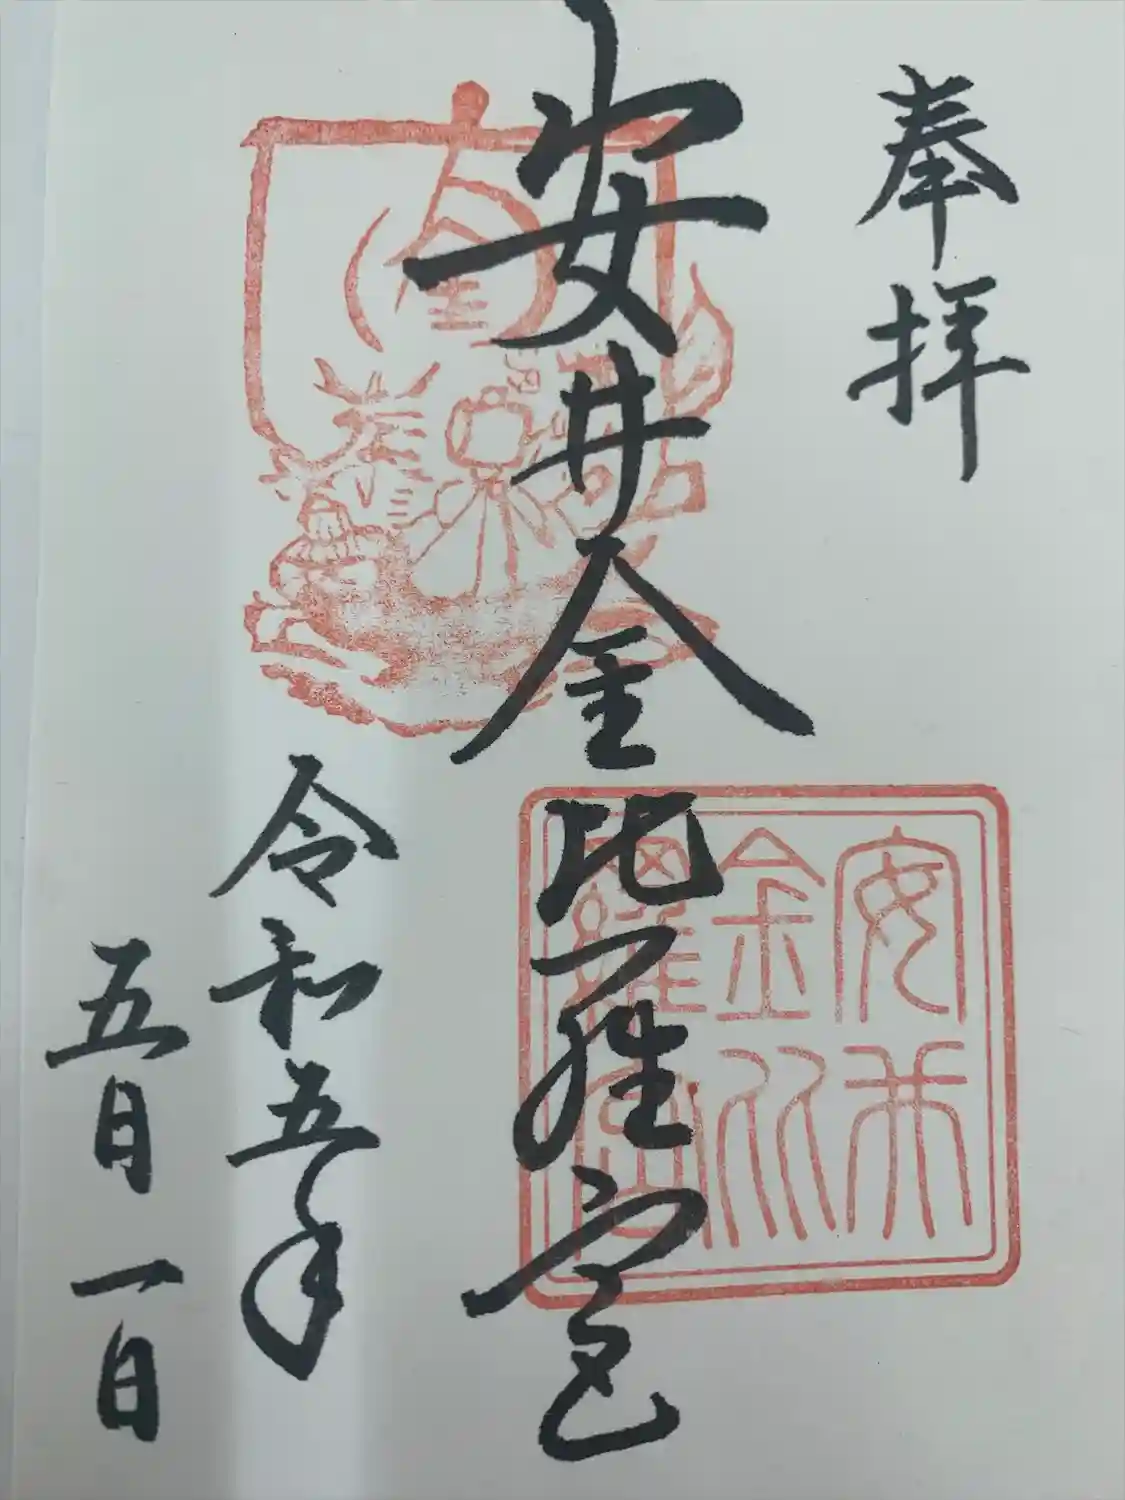 奉拝
安井金比羅宮
安井
金比
羅宮
金
奉
令和五年
五月一日